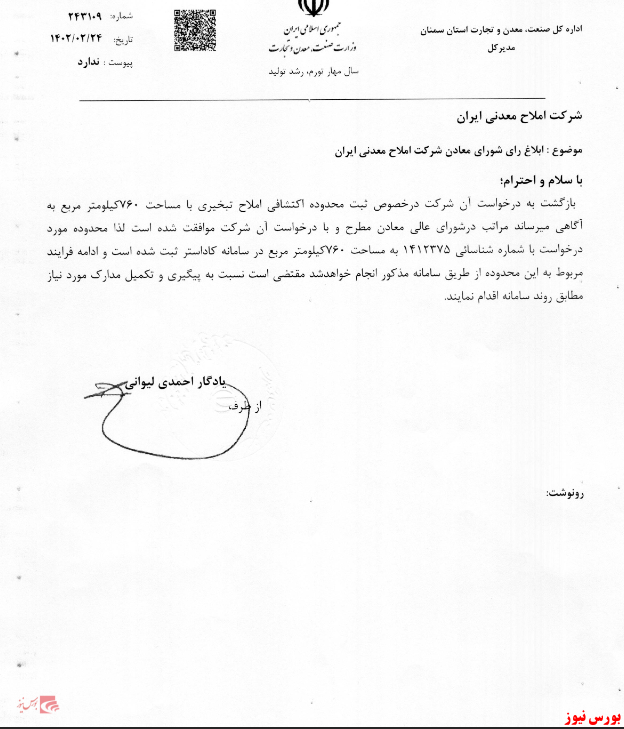 شماره: ۲۴۳۱۰۹
تاریخ: ۱۴۰۲/۰۲/۲۴
پیوست : ندارد
جمهوری اسلامی ایران
وزارت صنعت، معدن و تجارت
سال مهار تورم، رشد تولید
اداره کل صنعت، معدن و تجارت استان سمنان
مدیرکل
شرکت املاح معدنی ایران
موضوع : ابلاغ رای شورای معادن شرکت املاح معدنی ایران
با سلام و احترام؛
بازگشت به درخواست آن شرکت درخصوص ثبت محدوده اکتشافی املاح تبخیری با مساحت ۷۶۰کیلومتر مربع به
آگاهی میرساند مراتب درشورای عالی معادن مطرح و با درخواست آن شرکت موافقت شده است لذا محدوده مورد
درخواست با شماره شناسائی ۱۴۱۲۳۷۵ به مساحت ۷۶۰کیلومتر مربع در سامانه کاداستر ثبت شده است و ادامه فرایند
مربوط به این محدوده از طریق سامانه مذکور انجام خواهدشد مقتضی است نسبت به پیگیری و تکمیل مدارک مورد نیاز
مطابق روند سامانه اقدام نمایند.
یادگار احمدی لیوانی
از طرف
رونوشت:
بورس نیوز
بورس نیوز